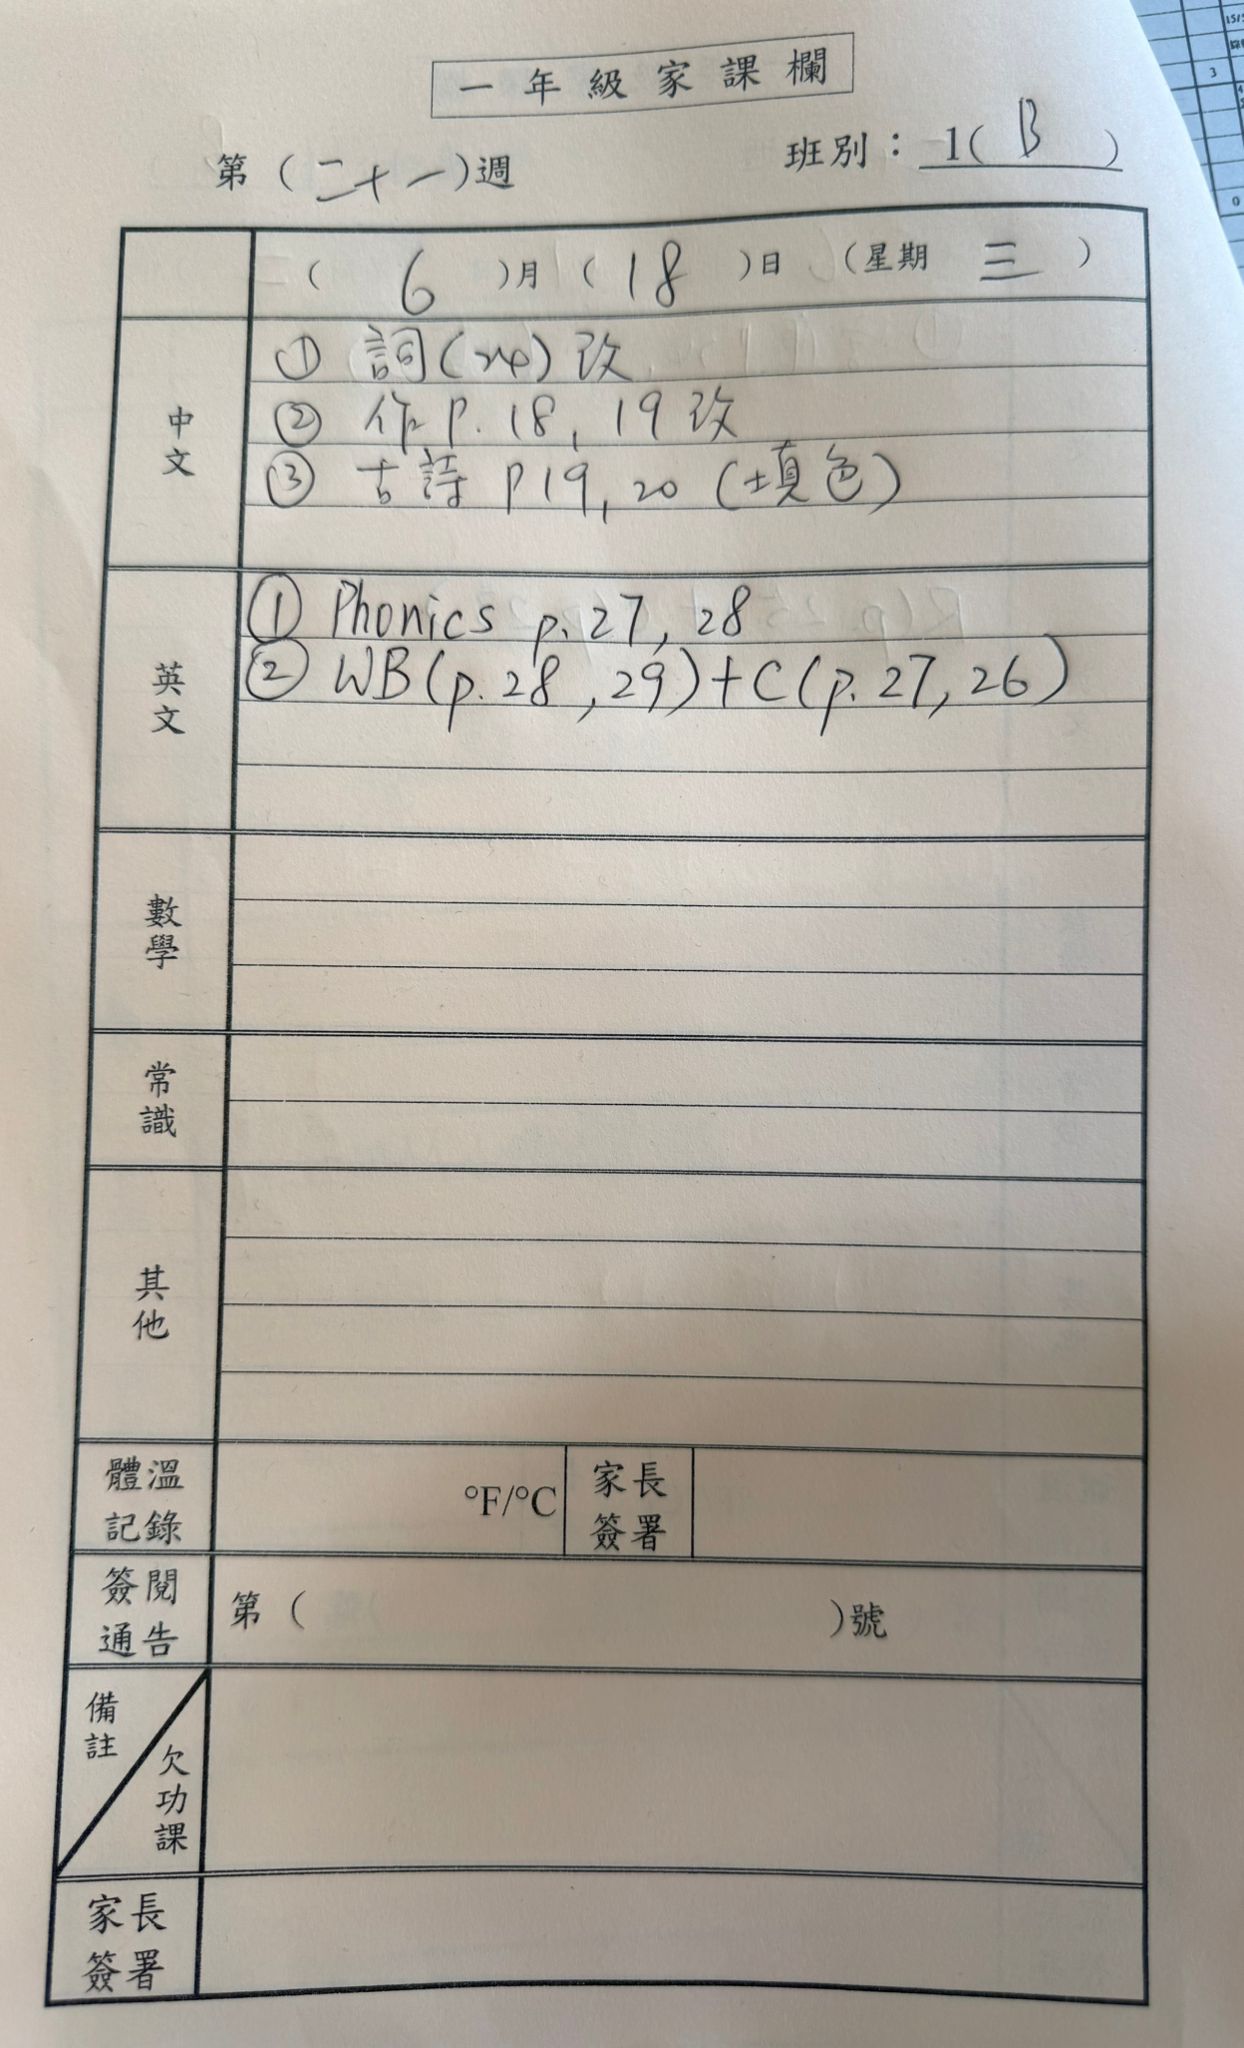 一年級家課欄
第（二十一）週 班別：1( B )
（ 6 ）月（ 18 ）日（星期 三 ）
中文
① 詞(24)改
② 作P.18, 19改
③ 古詩 P19, 20 (填色)
英文
① Phonics p.27, 28
② WB(p.28, 29)+C(p.27, 26)
數學
常識
其他
體溫記錄 °F/°C 家長簽署
簽閱通告 第（ ）號
備註 欠功課
家長簽署